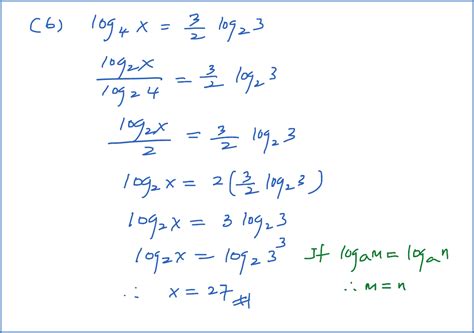 (b) log₄ x = 3/2 log₂ 3
log₂ x / log₂ 4 = 3/2 log₂ 3
log₂ x / 2 = 3/2 log₂ 3
log₂ x = 2 ( 3/2 log₂ 3 )
log₂ x = 3 log₂ 3
log₂ x = log₂ 3³ If logₐ m = logₐ n
∴ x = 27 # ∴ m = n